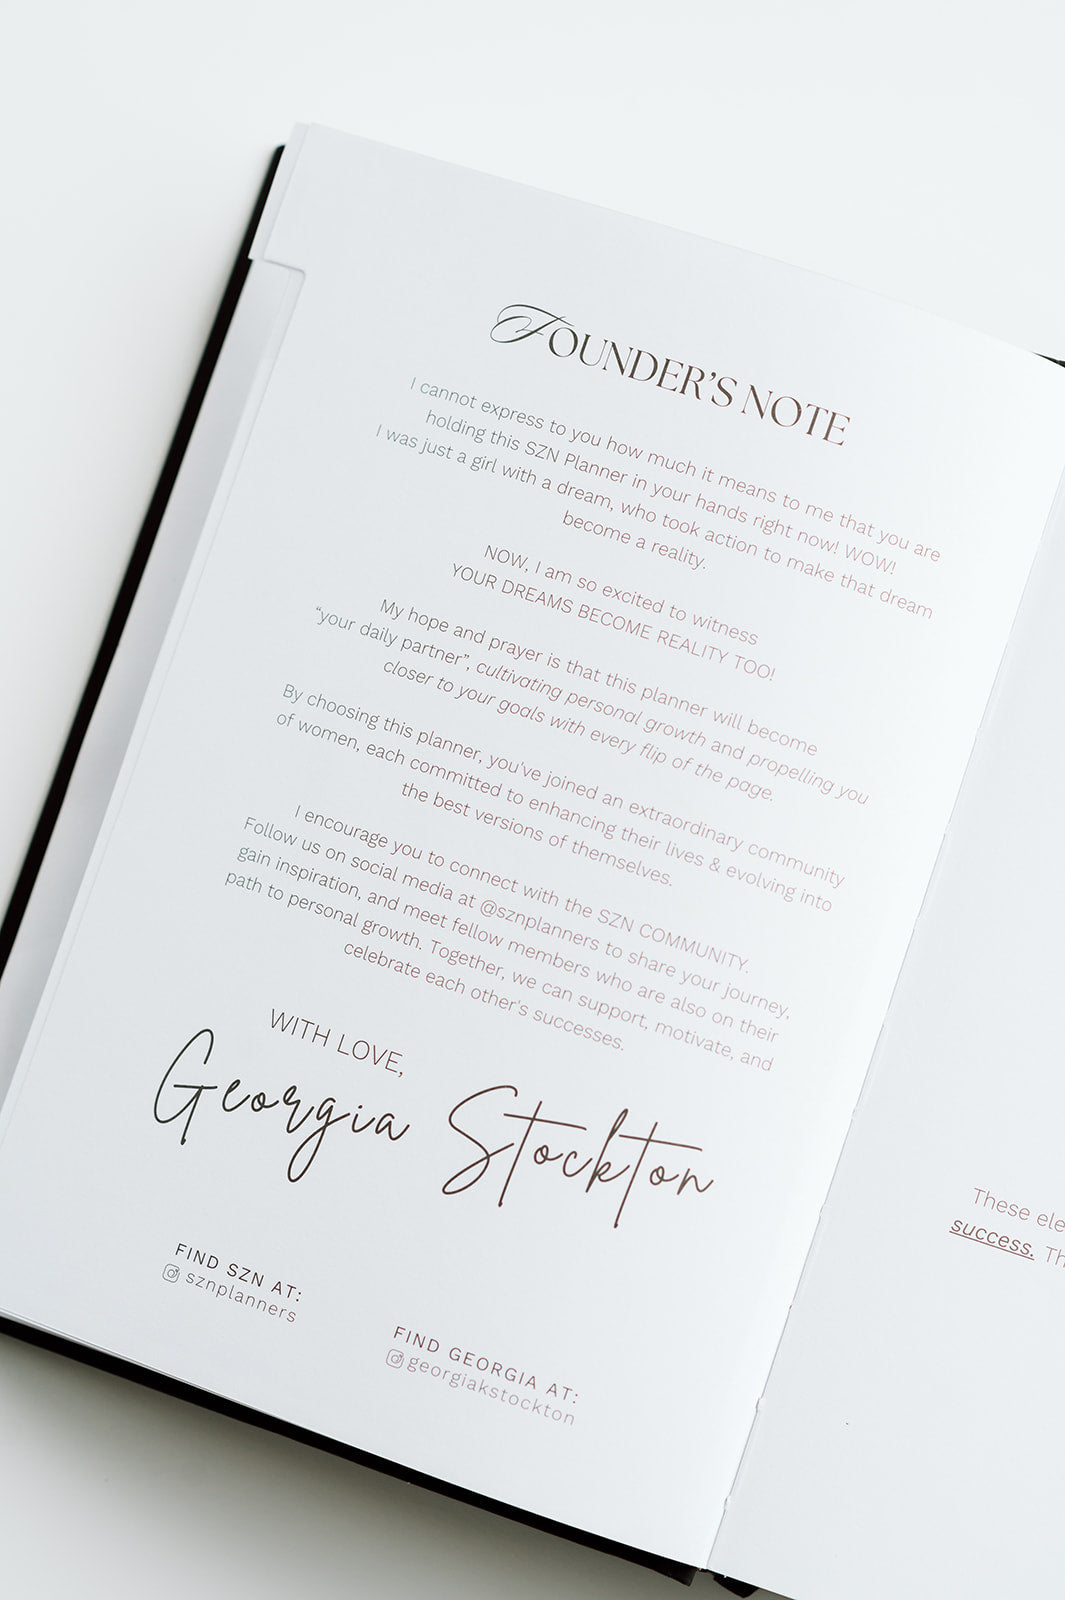 FOUNDER'S NOTE
I cannot express to you how much it means to me that you are
holding this SZN Planner in your hands right now! WOW!
I was just a girl with a dream, who took action to make that dream
become a reality.
NOW, I am so excited to witness
YOUR DREAMS BECOME REALITY TOO!
My hope and prayer is that this planner will become
“your daily partner”, cultivating personal growth and propelling you
closer to your goals with every flip of the page.
By choosing this planner, you've joined an extraordinary community
of women, each committed to enhancing their lives & evolving into
the best versions of themselves.
I encourage you to connect with the SZN COMMUNITY.
Follow us on social media at @sznplanners to share your journey,
gain inspiration, and meet fellow members who are also on their
path to personal growth. Together, we can support, motivate, and
celebrate each other's successes.
WITH LOVE,
Georgia Stockton
FIND SZN AT:
sznplanners
FIND GEORGIA AT:
georgiakstockton
These ele
success. Th